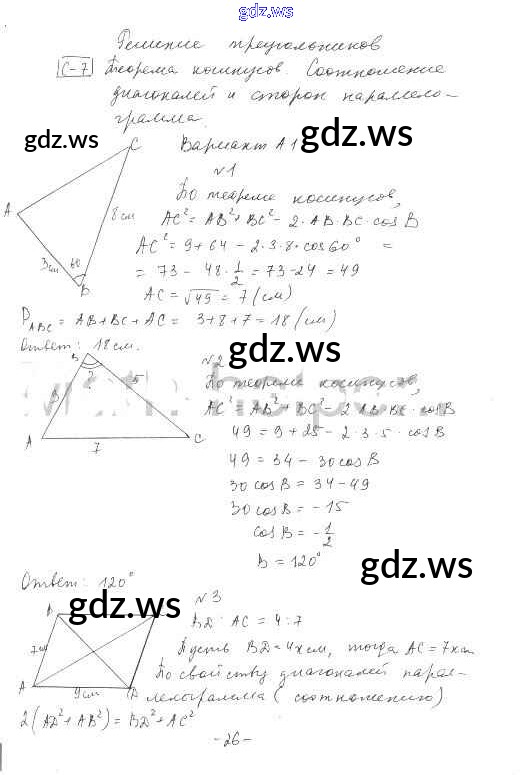 gdz.ws
Решение треугольников
С-7 Теорема косинусов. Соотношение
диагоналей и сторон параллело-
грамма.
gdz.ws
gdz.ws
Вариант А1
C
№1
По теореме косинусов,
A
8 см
AC² = AB² + BC² - 2·AB·BC·cos B
AC² = 9 + 64 - 2·3·8·cos 60° =
3см
60
= 73 - 48·1/2 = 73 - 24 = 49
B
AC = √49 = 7 (см)
P ABC = AB + BC + AC = 3 + 8 + 7 = 18 (см)
Ответ: 18 см.
gdz.ws
gdz.ws
B
?
№2
3
5
По теореме косинусов,
AC² = AB² + BC² - 2 AB·BC·cos B
A
7
C
49 = 9 + 25 - 2·3·5·cos B
49 = 34 - 30 cos B
30 cos B = 34 - 49
30 cos B = -15
cos B = -1/2
B = 120°
gdz.ws
gdz.ws
Ответ: 120°
№3
B
BD : AC = 4 : 7
7см
Пусть BD = 4x см, тогда AC = 7x см
По свойству диагоналей парал-
A
9см
D
лелограмма (соотношению)
2(AD² + AB²) = BD² + AC²
-26-